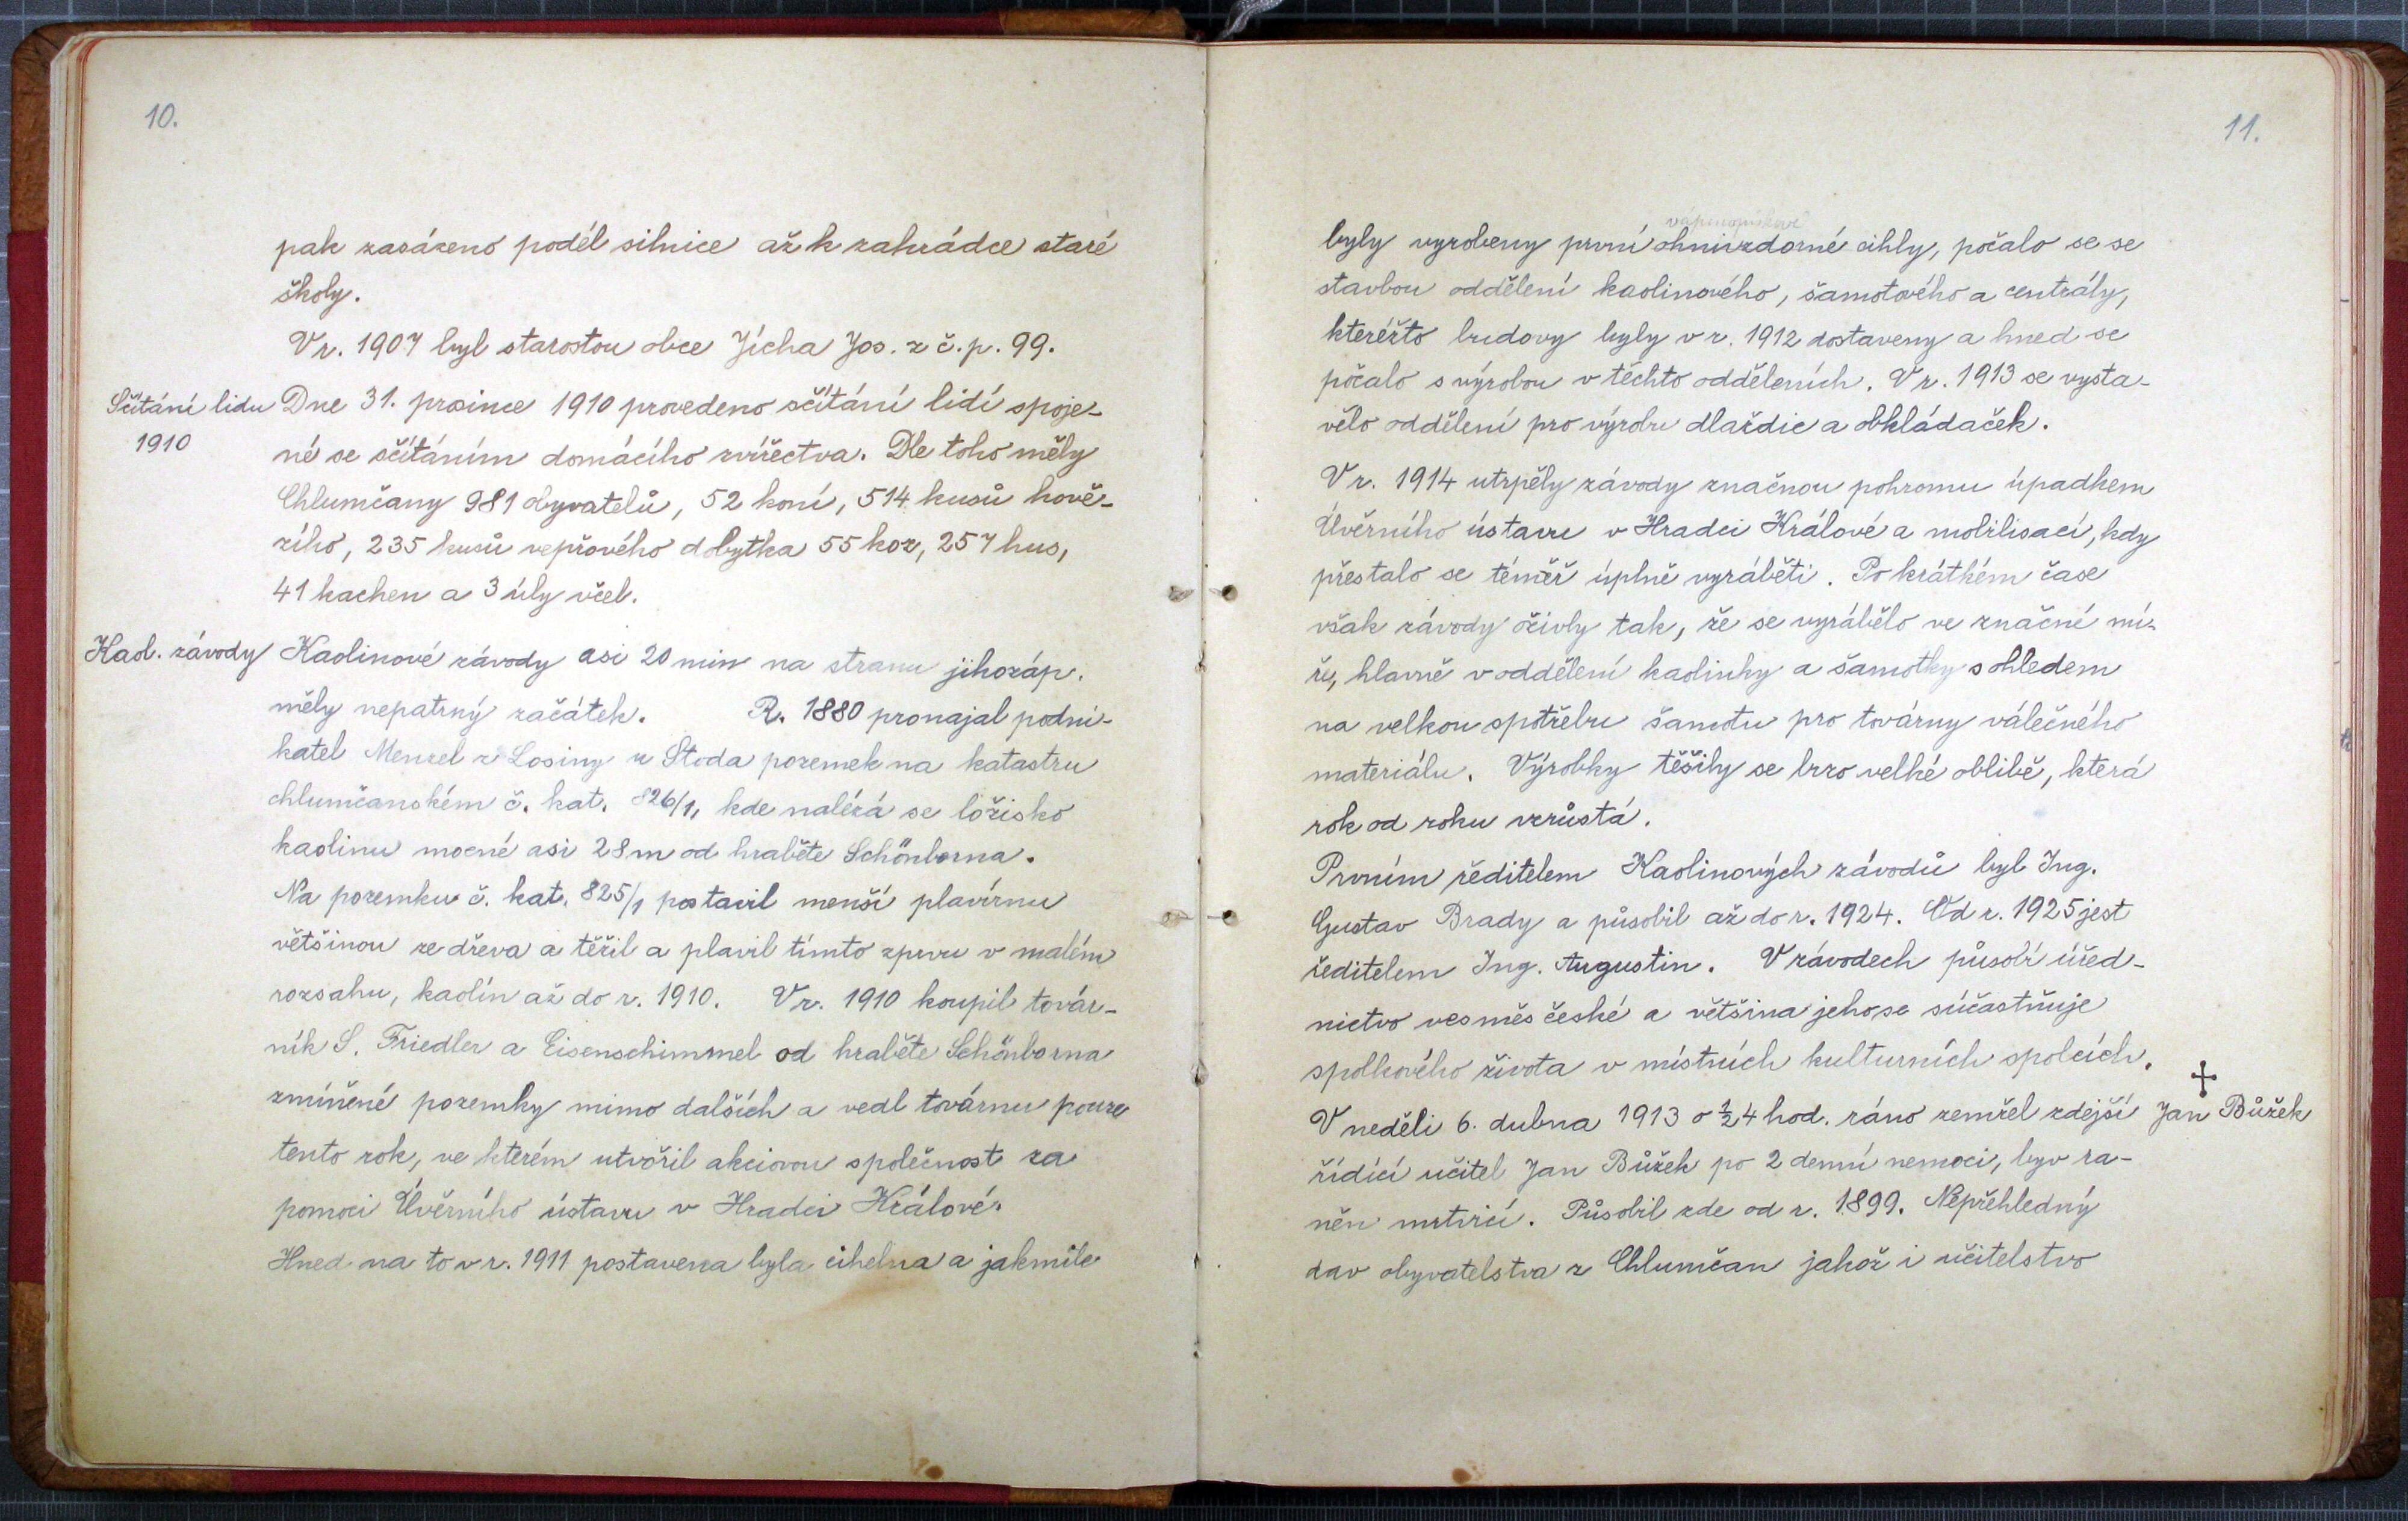 10.
pak zasázeno podél silnice až k zahrádce staré
školy.
V r. 1907 byl starostou obce Jícha Jos. z č. p. 99.
Sčítání lidu
1910
Dne 31. prosince 1910 provedeno sčítání lidí spoje-
né se sčítáním domácího zvířectva. Dle toho měly
Chlumčany 981 obyvatelů, 52 koní, 514 kusů hově-
zího, 235 kusů vepřového dobytka 55 koz, 257 hus,
41 kachen a 3 úly včel.
Kaol. závody
Kaolinové závody asi 20 min na stranu jihozáp.
měly nepatrný začátek. R. 1880 pronajal podni-
katel Menzel z Losiny u Stoda pozemek na katastru
chlumčanském č. kat. 826/1, kde nalézá se ložisko
kaolinu mocné asi 28 m od hraběte Schönborna.
Na pozemku č. kat. 825/1 postavil menší plavírnu
většinou ze dřeva a těžil a plavil tímto zprvu v malém
rozsahu, kaolín až do r. 1910. V r. 1910 koupil továr-
ník S. Friedler a Eisenschimmel od hraběte Schönborna
zmíněné pozemky mimo dalších a vedl továrnu pouze
tento rok, ve kterém utvořil akciovou společnost za
pomoci Úvěrního ústavu v Hradci Králové.
Hned na to v r. 1911 postavena byla cihelna a jakmile
11.
byly vyrobeny první ohnivzdorné cihly, počalo se se
stavbou oddělení kaolinového, šamotového a centrály,
kteréžto budovy byly v r. 1912 dostaveny a hned se
počalo s výrobou v těchto odděleních. V r. 1913 se vysta-
vělo oddělení pro výrobu dlaždic a obkládaček.
V r. 1914 utrpěly závody značnou pohromu úpadkem
Úvěrního ústavu v Hradci Králové a mobilisací, kdy
přestalo se téměř úplně vyráběti. Po krátkém čase
však závody ožívly tak, že se vyrábělo ve značné mí-
ře, hlavně v oddělení kaolinky a šamotky s ohledem
na velkou spotřebu šamotu pro továrny válečného
materiálu. Výrobky těšily se brzo velké oblibě, která
rok od roku vzrůstá.
Prvním ředitelem Kaolinových závodů byl Ing.
Gustav Brady a působil až do r. 1924. Od r. 1925 jest
ředitelem Ing. Augustin. V závodech působí úřed-
nictvo vesměs české a většina jeho se súčastňuje
spolkového života v místních kulturních spolcích.
V neděli 6. dubna 1913 o ½4 hod. ráno zemřel zdejší
† Jan Bůžek
řídící učitel Jan Bůžek po 2 denní nemoci, byv ra-
něn mrtvicí. Působil zde od r. 1899. Nepřehledný
dav obyvatelstva z Chlumčan jakož i učitelstvo